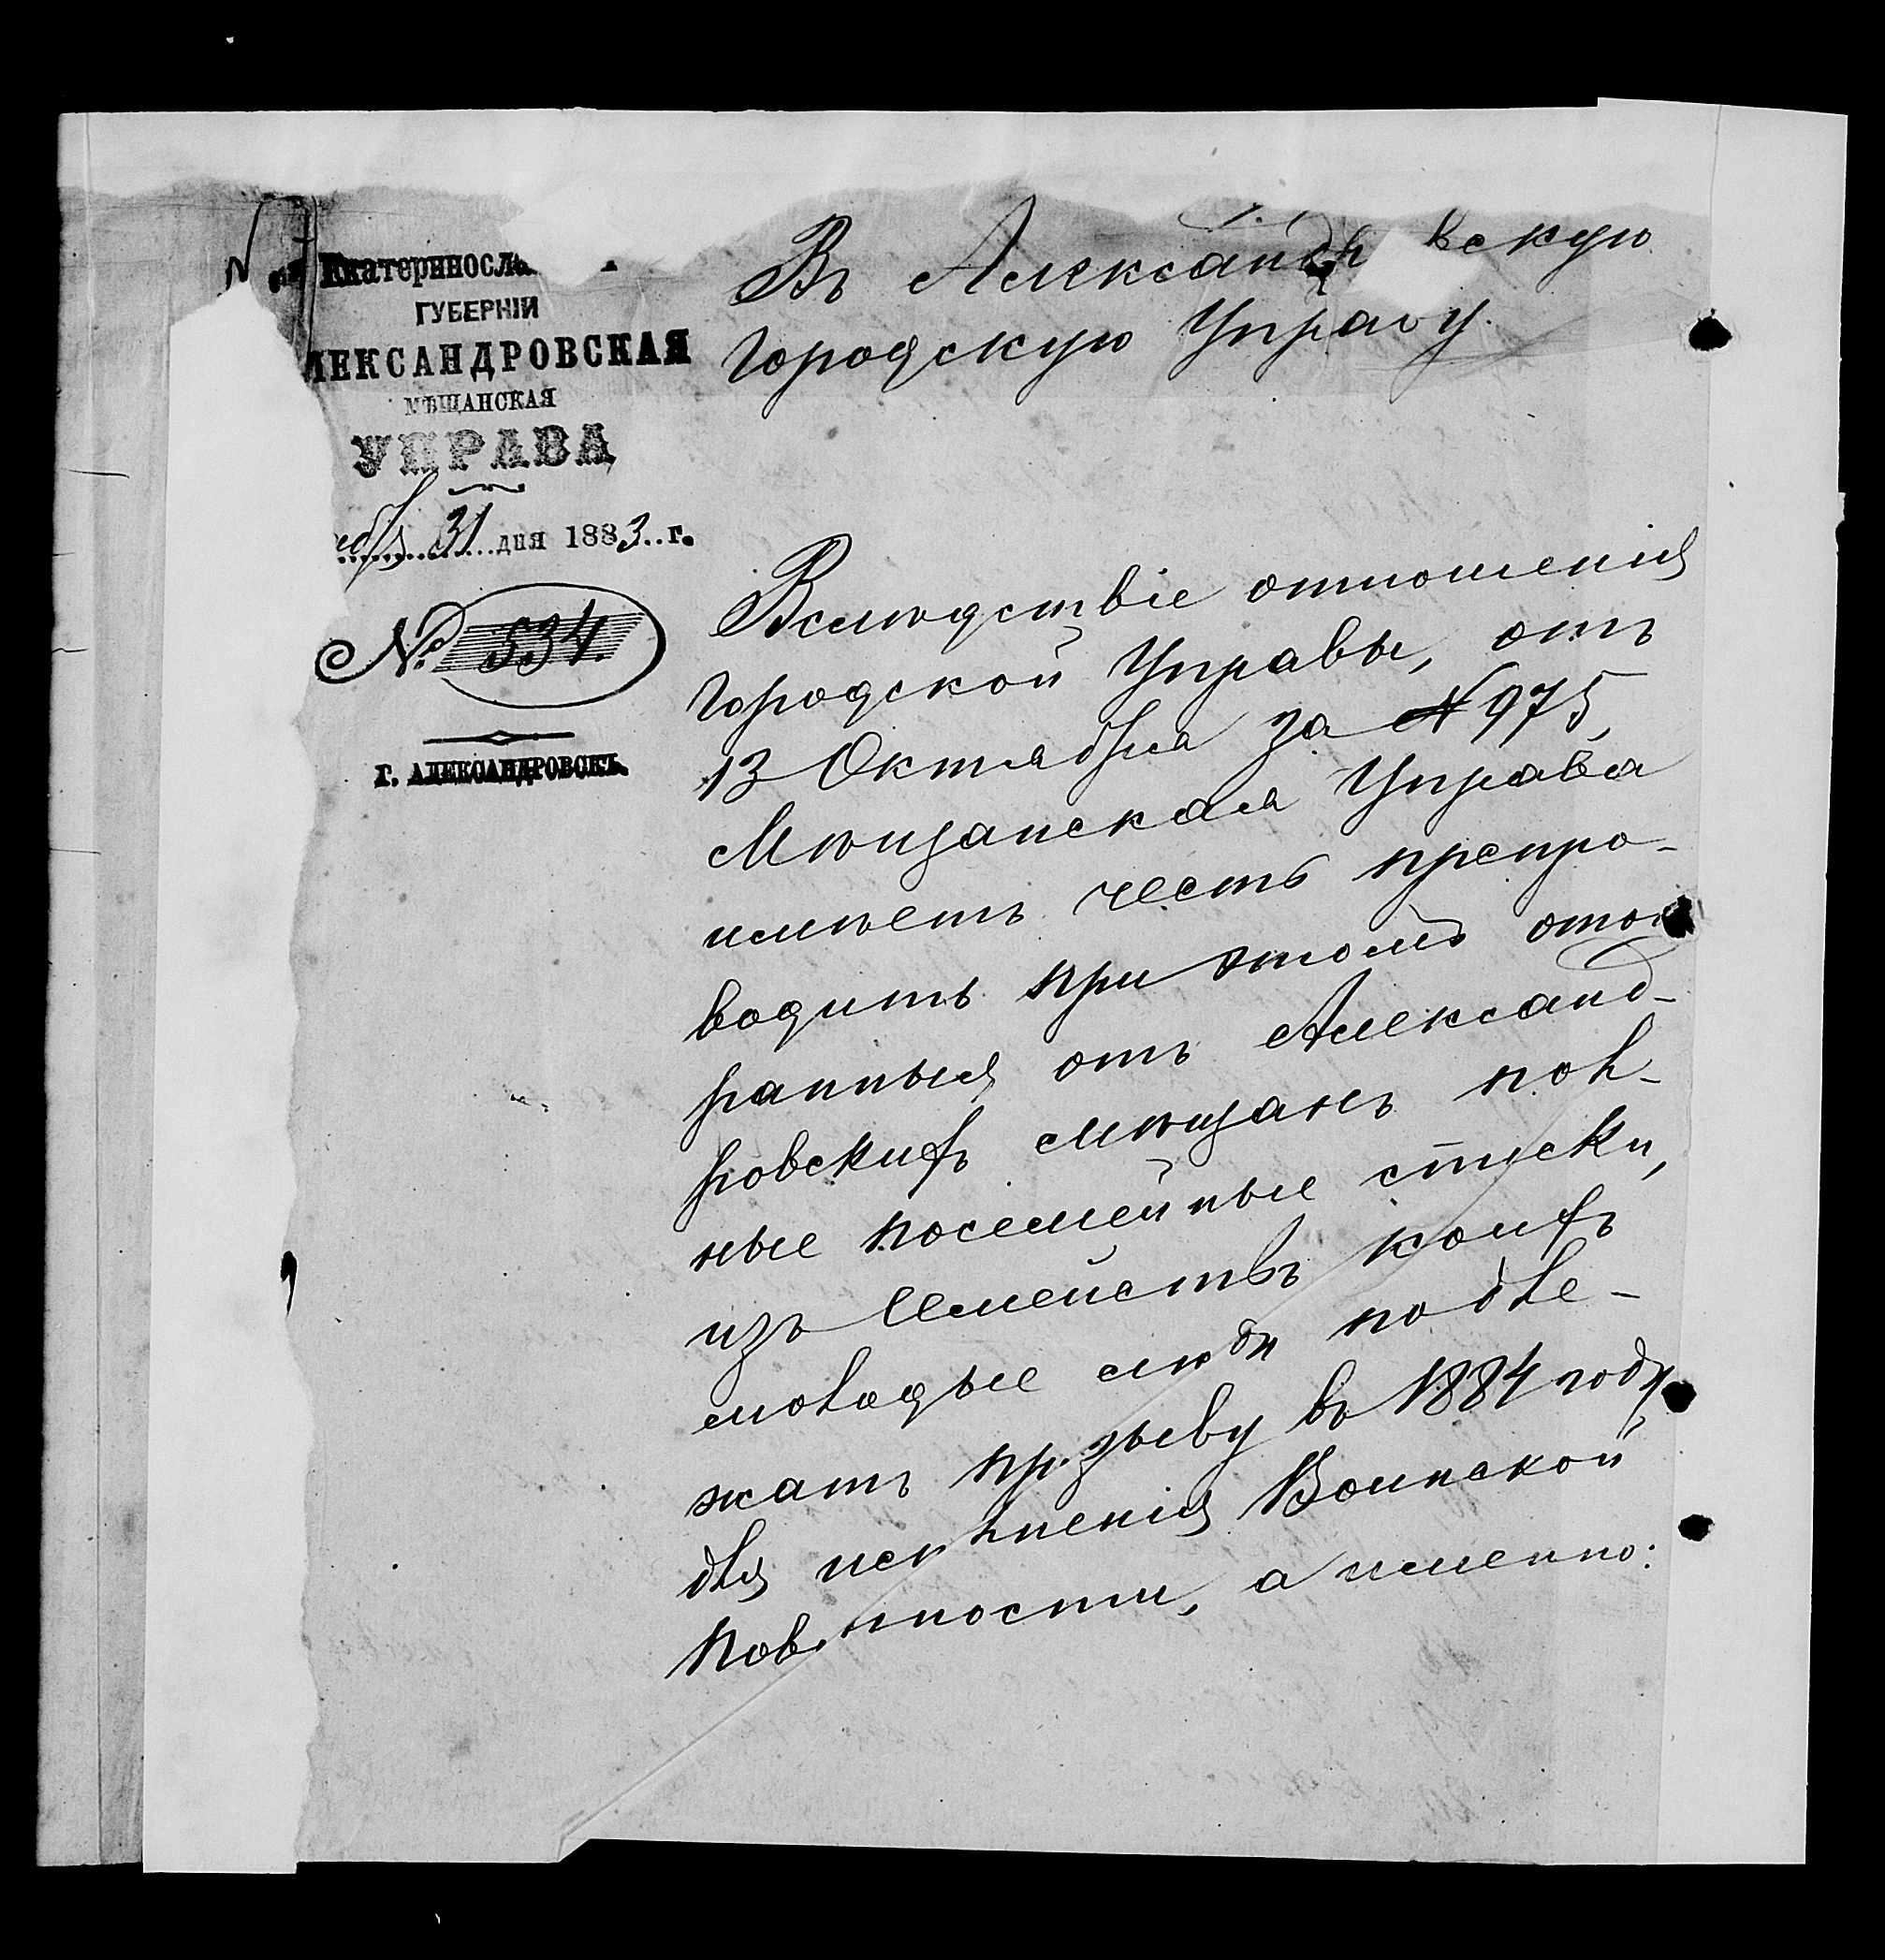 Екатериносла
ГУБЕРНІИ
ЛЕКСАНДРОВСКАЯ
МѢЩАНСКАЯ
УПРАВА
31 дня 1883 г.
№ 534.
г. АЛЕКСАНДРОВСКЪ.
Въ Александр вскую
Городскую Управу.
Вслѣдствіе отношенія
Городской Управы, отъ
13 Октября за № 975,
Мѣщанская Управа
имѣетъ честь препро-
водить при этомъ отоб
ранныя отъ Александ-
ровскихъ мѣщанъ пол-
ные посемейные списки,
изъ семействъ коихъ
молодые люди подле-
жатъ призыву въ 1884 году
для исполненія Воинской
повинности, а именно: